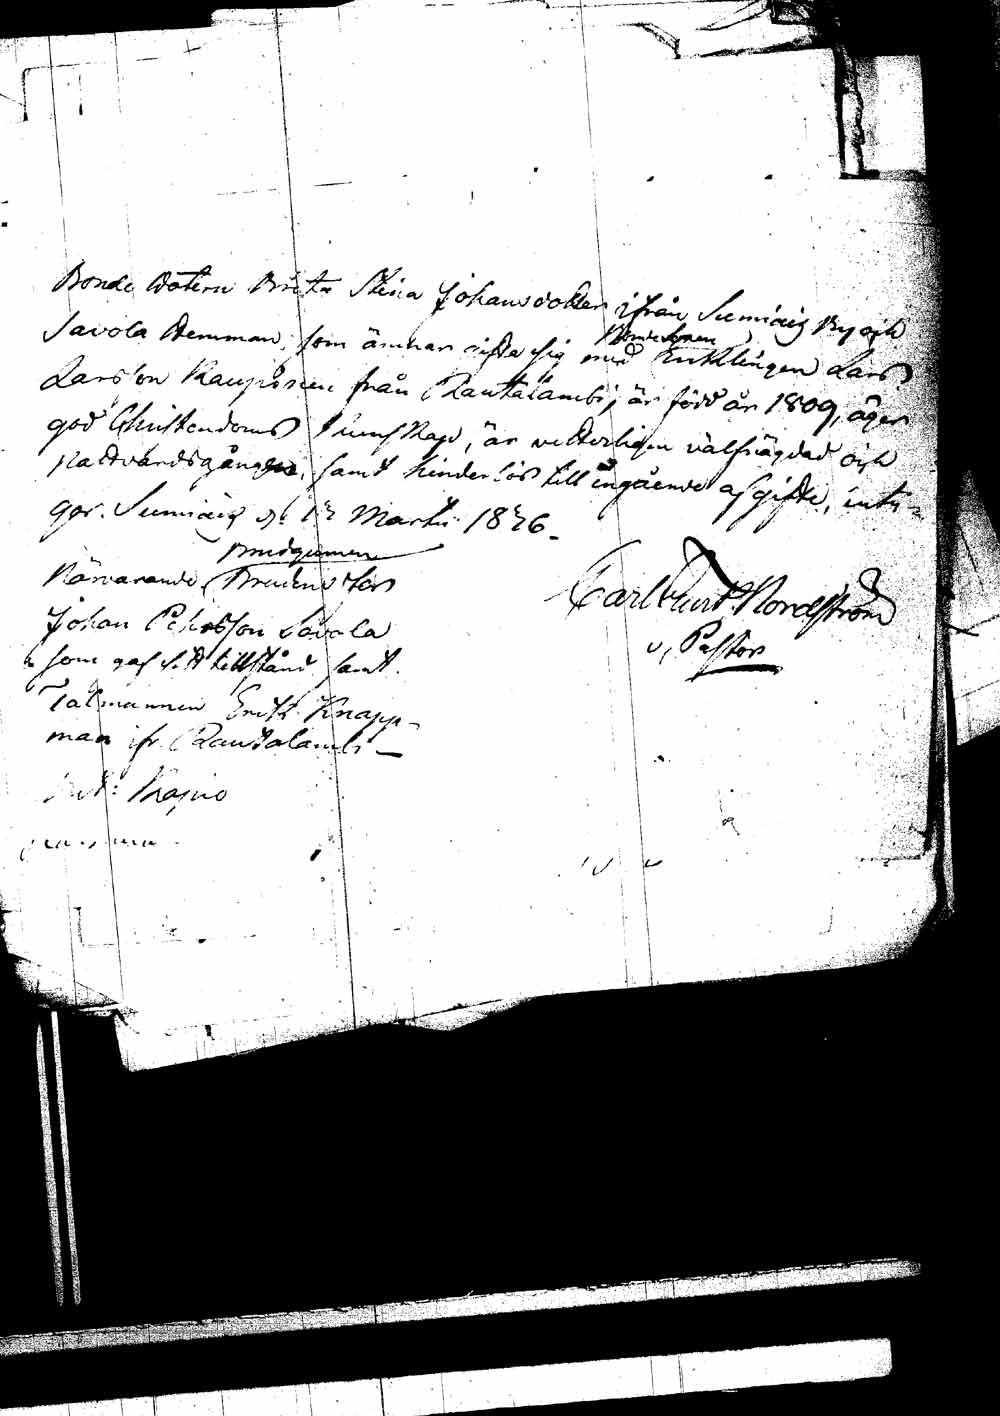 Bonde Dotern Brita Stina Johansdotter ifrån Sumiais By och
Savola Hemman, som ämnar gifta sig med Bondesonen Enklingen Lars
Larsson Kauponen från Rautalambi, är född år 1809, äger
god Christendoms kunskap, är vetterligen välfrägdad och
nattvardsgången, samt hinderlös till ingående af gifte, inty-
gar. Sumiais d. 12 Martii 1836.
Brudgumen
Närvarande, Brudens Far
Johan Savola
som gaf sitt tillstånd samt
Talmannen Erik Knapp-
man ifr. Rautalambi
Carl Nordström
v. Pastor